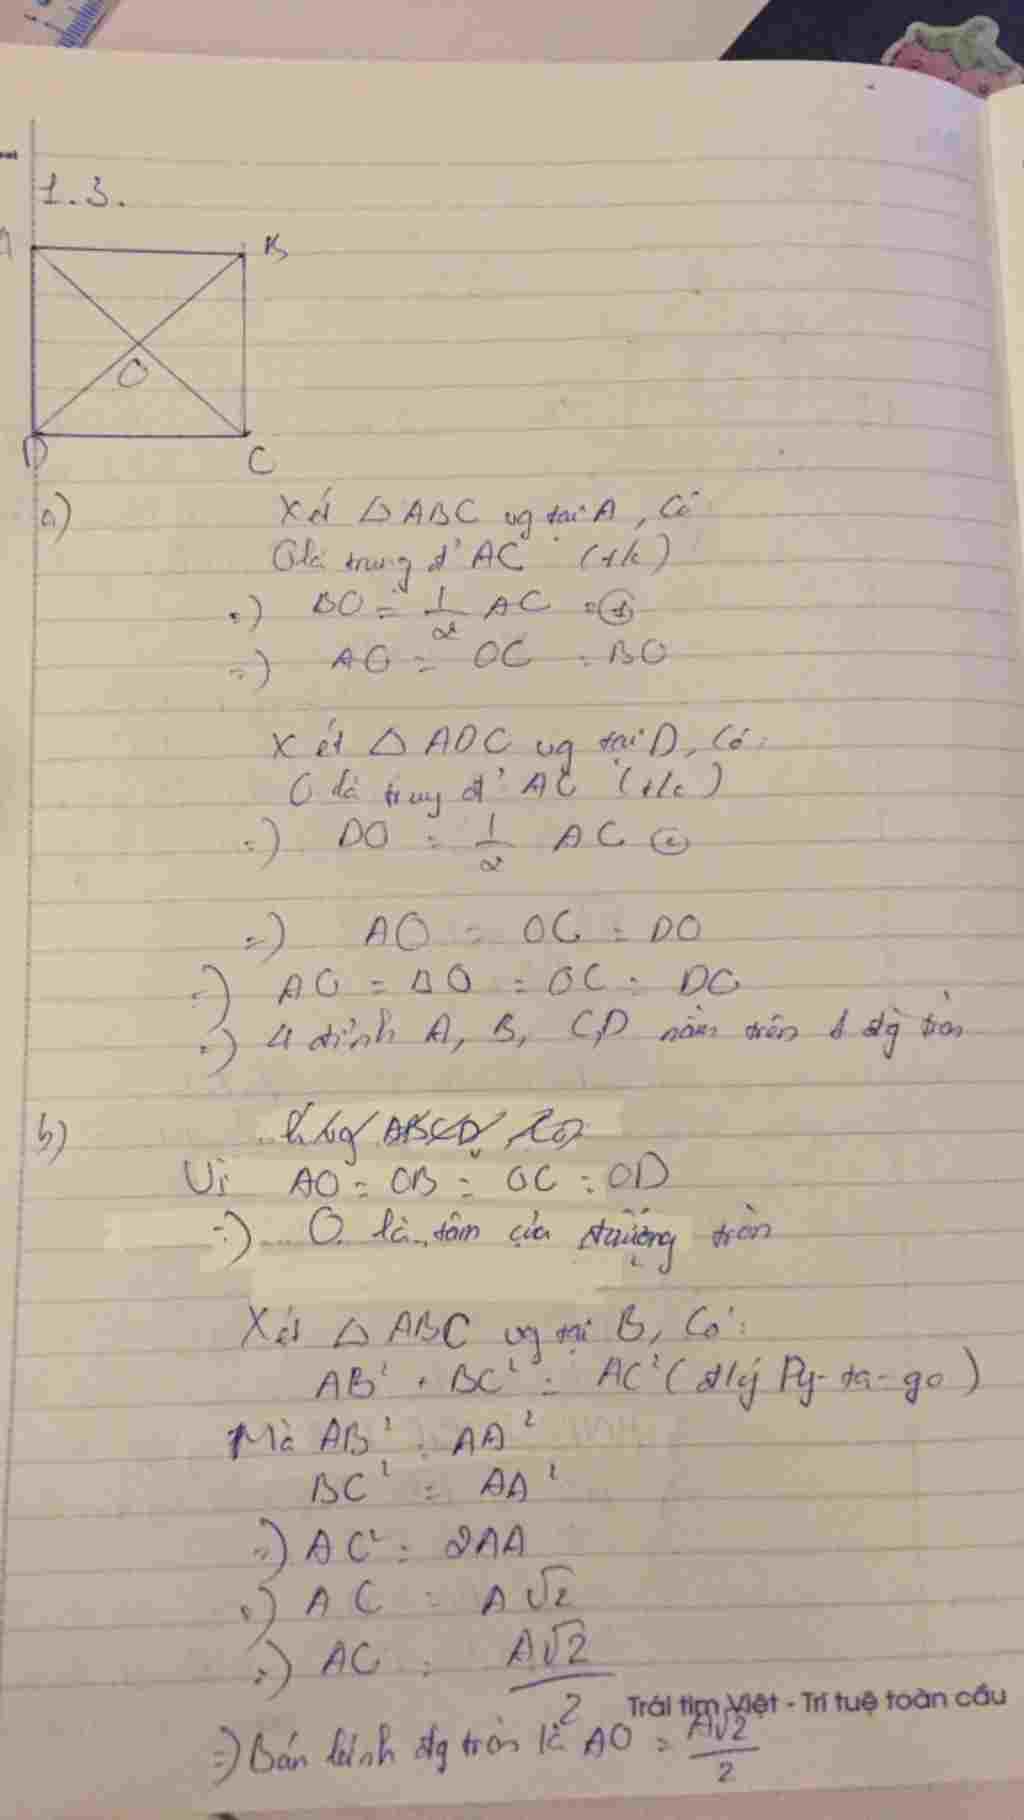 1.3.
A
B
O
D
C
a)
Xét △ ABC vg tại A, Có
O là trung đ' AC (t/c)
=) BO = 1/2 AC ①
=) AO = OC = BO
Xét △ ADC vg tại D, Có:
O là trung đ' AC (t/c)
=) DO = 1/2 AC ②
=) AO = OC = DO
=) AO = BO = OC = DO
=) 4 đỉnh A, B, C, D nằm trên 1 đg tròn
b)
ABCD
Vì AO = OB = OC = OD
=) O là tâm của đường tròn
Xét △ ABC vg tại B, Có:
AB² + BC² = AC² (đlý Py-ta-go)
Mà AB² = AA²
BC² = AA²
=) AC² = 2AA
=) AC = A√2
=) AO = A√2/2
Trái tim Việt - Trí tuệ toàn cầu
=) Bán kính đg tròn là AO = A√2/2